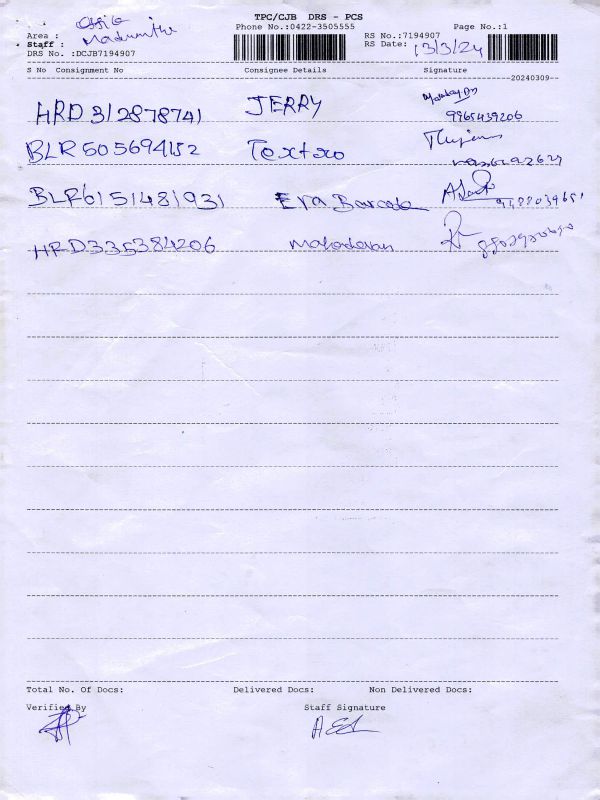 TPC/CJB DRS - PCS
Office
Area : Phone No.:0422-3505555 Page No.:1
Madumitha
Staff : RS No.:7194907
DRS No. :DCJB7194907 RS Date: 13/3/24
S No Consignment No Consignee Details Signature
20240309
HRD312878741 JERRY
9965439206
BLR505694152 Textxo
BLR6151481931 Era Barcode
HRD335384206 Mahadevan
Total No. Of Docs: Delivered Docs: Non Delivered Docs:
Verified By Staff Signature